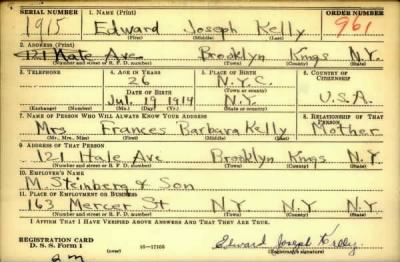 SERIAL NUMBER 1. NAME (Print) ORDER NUMBER
1915 Edward Joseph Kelly 961
(First) (Middle) (Last)
2. ADDRESS (Print)
121 Hale Ave. Brooklyn Kings N.Y.
(Number and street or R. F. D. number) (Town) (County) (State)
3. TELEPHONE 4. AGE IN YEARS 5. PLACE OF BIRTH 6. COUNTRY OF CITIZENSHIP
26 N.Y.C.
DATE OF BIRTH (Town or county)
Jul. 19 1914 N.Y. U.S.A.
(Exchange) (Number) (Mo.) (Day) (Yr.) (State or country)
7. NAME OF PERSON WHO WILL ALWAYS KNOW YOUR ADDRESS 8. RELATIONSHIP OF THAT PERSON
Mrs Frances Barbara Kelly Mother
(Mr., Mrs., Miss) (First) (Middle) (Last)
9. ADDRESS OF THAT PERSON
121 Hale Ave. Brooklyn Kings N.Y.
(Number and street or R. F. D. number) (Town) (County) (State)
10. EMPLOYER'S NAME
M. Steinberg & Son
11. PLACE OF EMPLOYMENT OR BUSINESS
163 Mercer St NY NY N.Y.
(Number and street or R. F. D. number) (Town) (County) (State)
I AFFIRM THAT I HAVE VERIFIED ABOVE ANSWERS AND THAT THEY ARE TRUE.
REGISTRATION CARD
D. S. S. FORM 1 (over) 16-17105 Edward Joseph Kelly
(Registrant's signature)